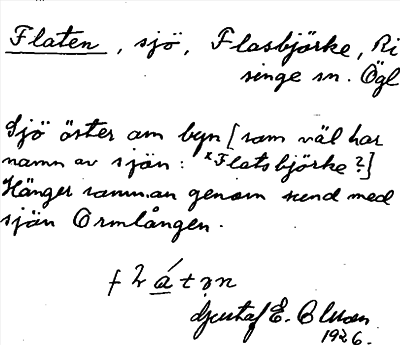 Flaten, sjö, Flasbjörke, Ri
singe sn. Ögl
Sjö öster om byn [som väl har
namn av sjön: *Flatsbjörke?]
Hänger samman genom sund med
sjön Ormlången.
flátən
Gustaf E. Blman.
1926.